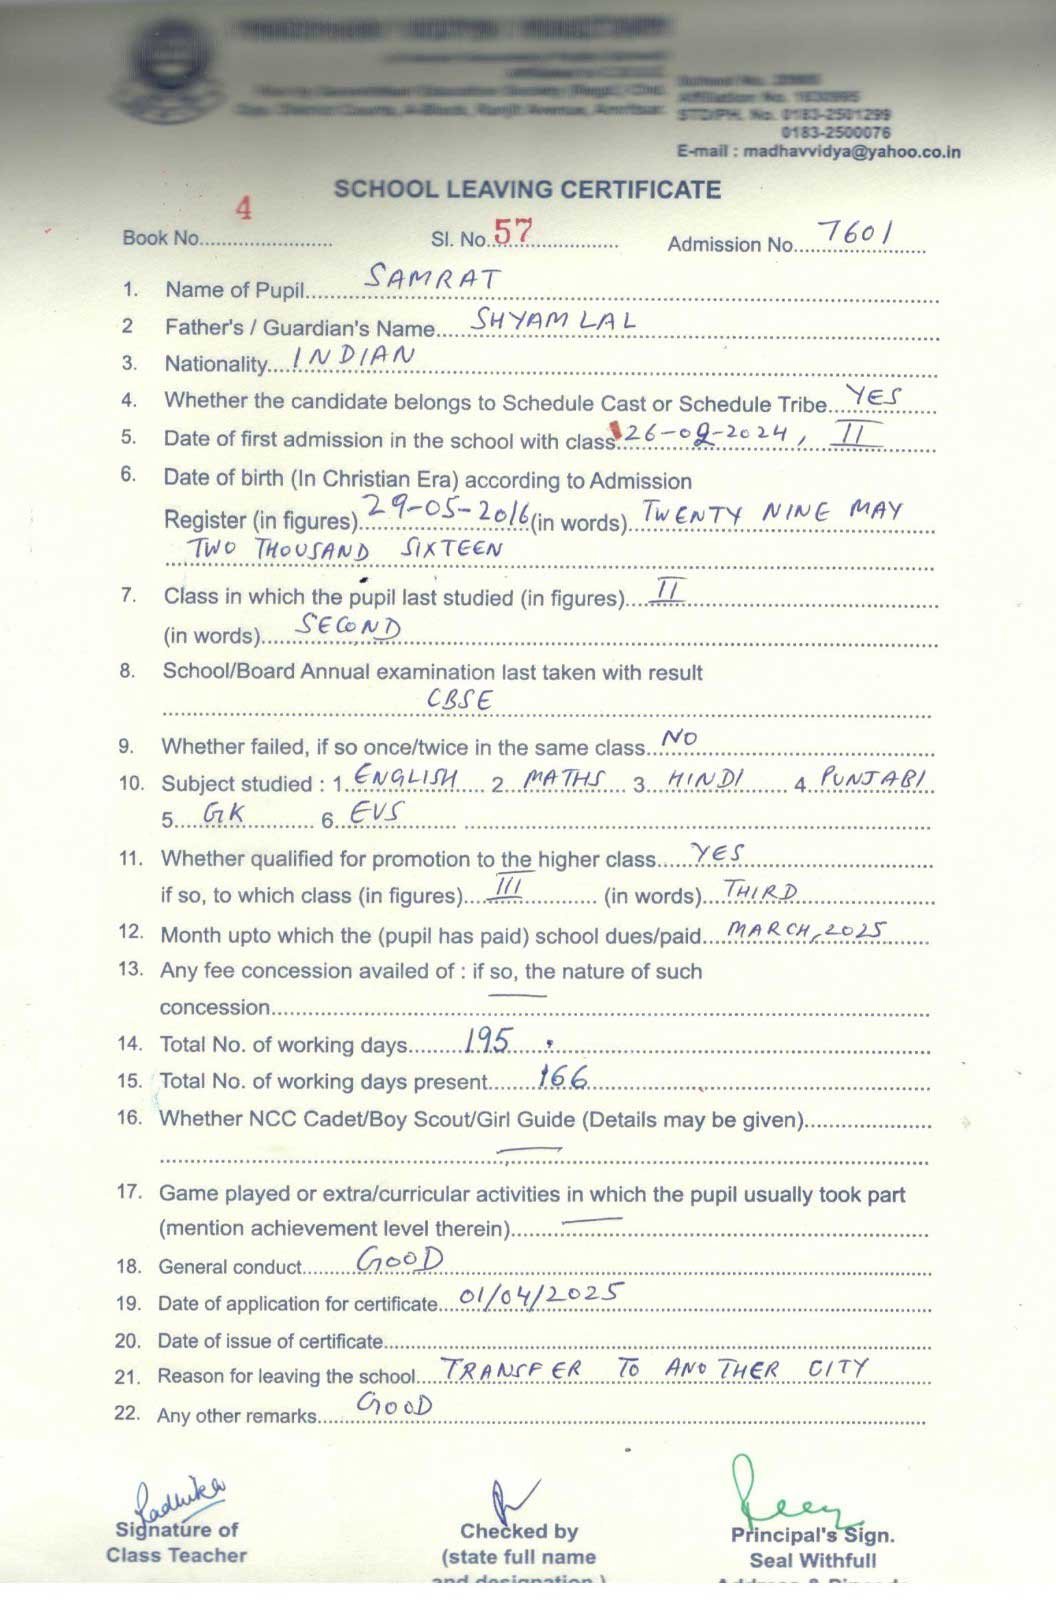 STD/PH. No. 0183-2501299
0183-2500076
E-mail : madhavvidya@yahoo.co.in
SCHOOL LEAVING CERTIFICATE
Book No. 4 Sl. No. 57 Admission No. 7601
1. Name of Pupil SAMRAT
2 Father's / Guardian's Name SHYAM LAL
3. Nationality INDIAN
4. Whether the candidate belongs to Schedule Cast or Schedule Tribe YES
5. Date of first admission in the school with class 26-02-2024, II
6. Date of birth (In Christian Era) according to Admission
Register (in figures) 29-05-2016 (in words) TWENTY NINE MAY
TWO THOUSAND SIXTEEN
7. Class in which the pupil last studied (in figures) II
(in words) SECOND
8. School/Board Annual examination last taken with result
CBSE
9. Whether failed, if so once/twice in the same class NO
10. Subject studied : 1. ENGLISH 2. MATHS 3. HINDI 4. PUNJABI
5. GK 6. EVS
11. Whether qualified for promotion to the higher class YES
if so, to which class (in figures) III (in words) THIRD
12. Month upto which the (pupil has paid) school dues/paid MARCH, 2025
13. Any fee concession availed of : if so, the nature of such
concession
14. Total No. of working days 195
15. Total No. of working days present 166
16. Whether NCC Cadet/Boy Scout/Girl Guide (Details may be given)
17. Game played or extra/curricular activities in which the pupil usually took part
(mention achievement level therein)
18. General conduct GOOD
19. Date of application for certificate 01/04/2025
20. Date of issue of certificate
21. Reason for leaving the school TRANSFER TO ANOTHER CITY
22. Any other remarks GOOD
Radhika
Signature of Checked by Principal's Sign.
Class Teacher (state full name Seal Withfull
and designation)